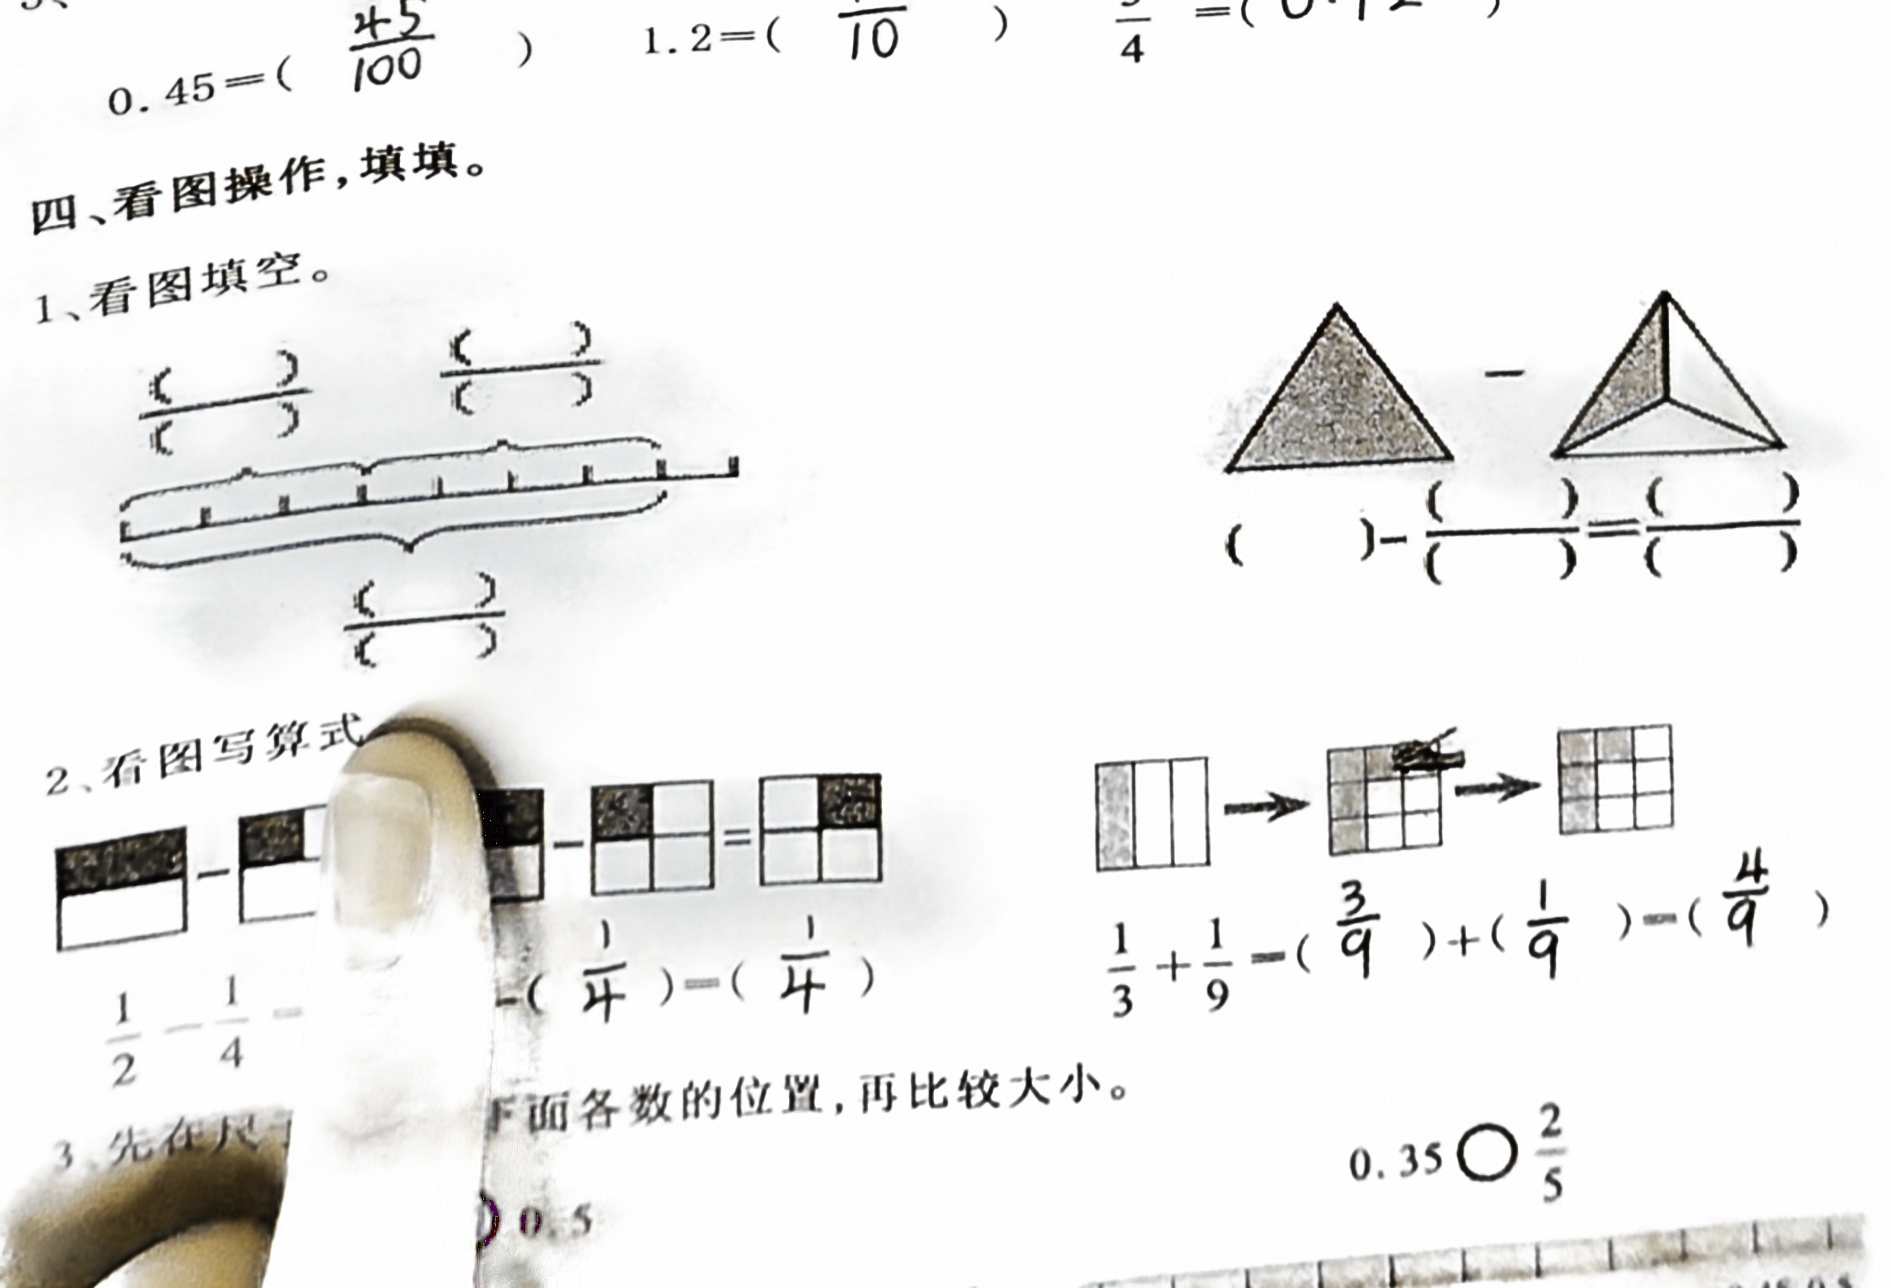 0.45=( 45/100 ) 1.2=( /10 ) /4 =( )
四、看图操作,填填。
1、看图填空。
( )/( ) ( )/( )
( )/( )
-
( )-( )/( )=( )/( )
2、看图写算式
- - =
1/2 - 1/4 = -( 1/4 )=( 1/4 )
1/3 + 1/9 =( 3/9 )+( 1/9 )=( 4/9 )
3、先在尺 下面各数的位置,再比较大小。
0.5 0.35○2/5